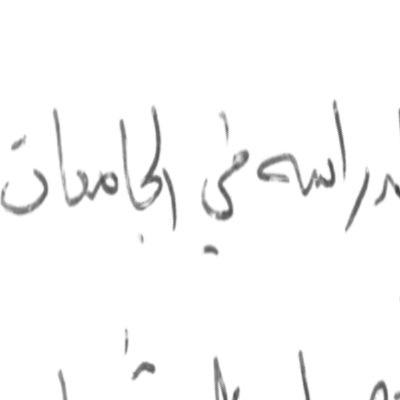 لدراسه في الجامعات